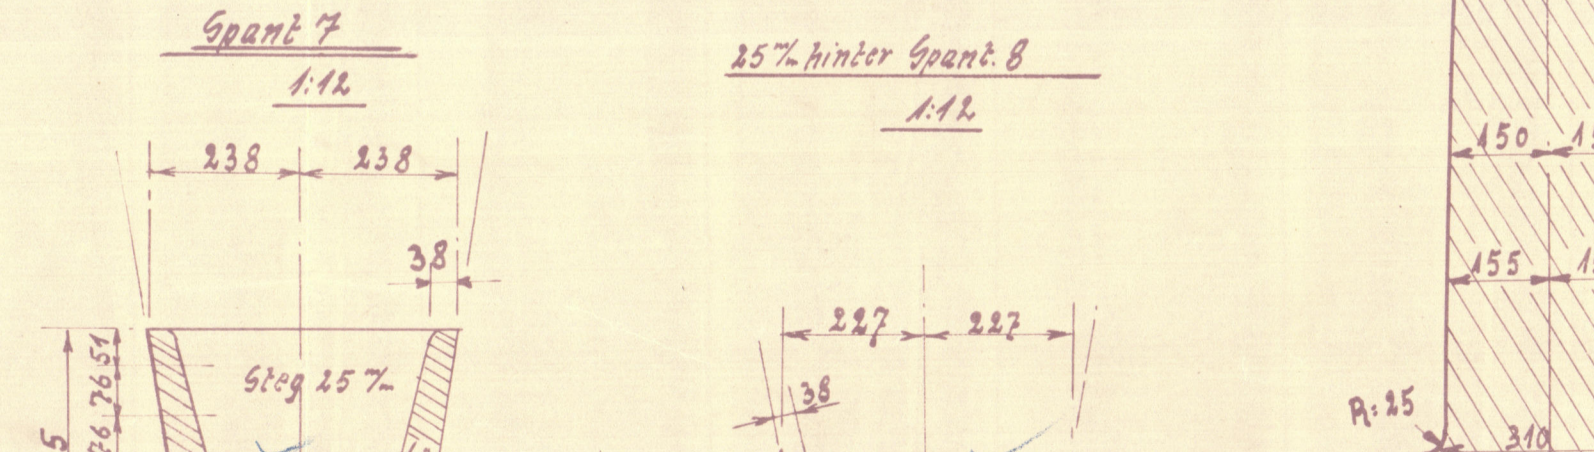 Spant 7
1:12
238 238
38
51
76
76
5
Steg 25 m/m
25 m/m hinter Spant. 8
1:12
227 227
38
150
155
R:25
310